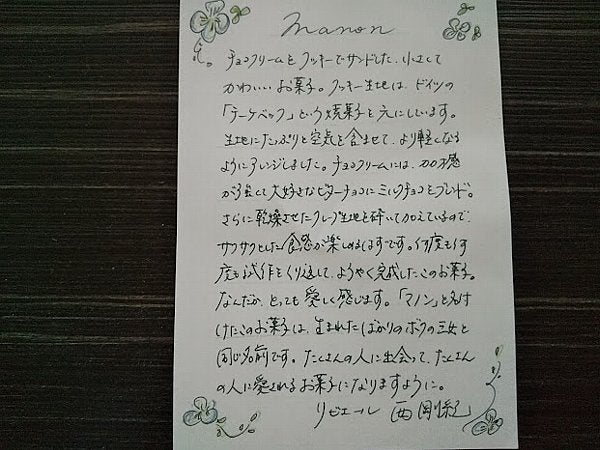 manon
チョコクリームをクッキーでサンドした、小さくて
かわいいお菓子。クッキー生地は、ドイツの
「テーゲベック」という焼菓子を元にしています。
生地にたっぷりと空気を含ませて、より軽くなる
ようにアレンジしました。チョコクリームには、カカオ感
が強くて大好きなビターチョコにミルクチョコをブレンド。
さらに乾燥させたクレープ生地を砕いて加えているので、
サクサクとした食感が楽しめるはずです。何度も何
度も試作をくり返して、ようやく完成したこのお菓子。
なんだか、とっても愛しく感じます。「マノン」と名付
けたこのお菓子は、生まれたばかりのボクの三女と
同じ名前です。たくさんの人に出会って、たくさん
の人に愛されるお菓子になりますように。
リビエール 西剛紀